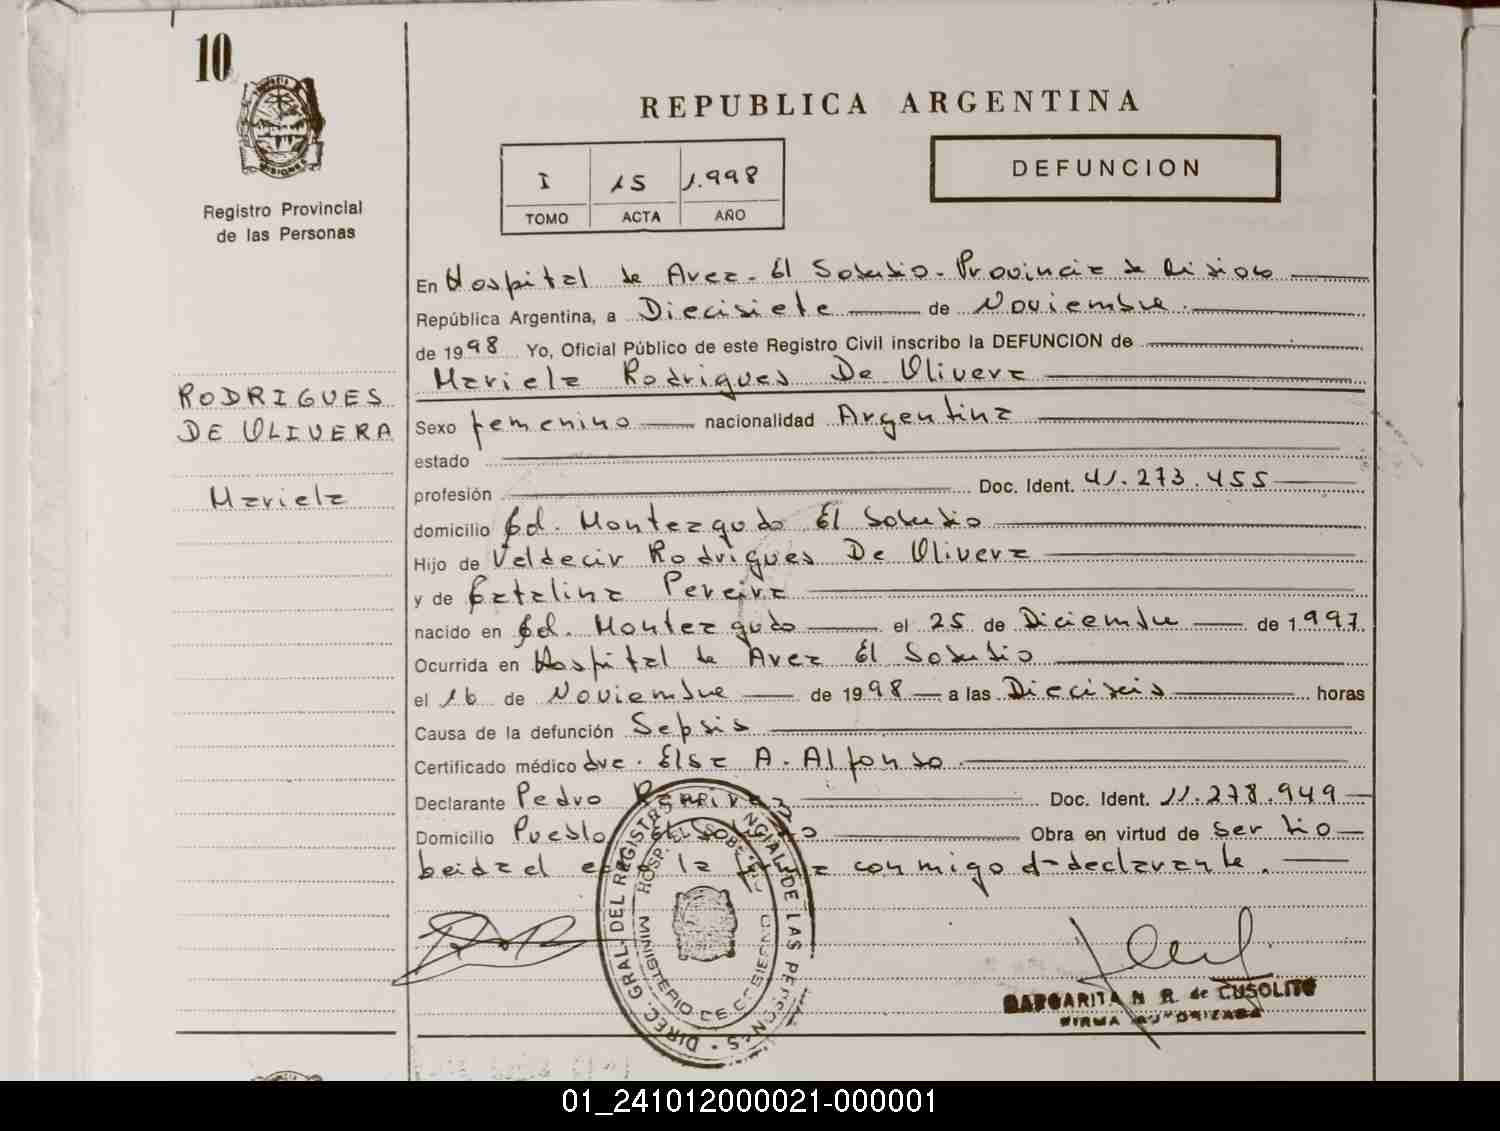 10
Registro Provincial
de las Personas
REPUBLICA ARGENTINA
DEFUNCION
I 15 1.998
TOMO ACTA AÑO
En Hospital de Area - El Soberbio - Provincia de Misiones
República Argentina, a Diecisiete de Noviembre
de 1998 Yo, Oficial Público de este Registro Civil inscribo la DEFUNCION de
Mariela Rodrigues De Olivera
RODRIGUES
DE OLIVERA
Mariela
Sexo femenino nacionalidad Argentina
estado
profesión Doc. Ident. 41.273.455
domicilio Cd. Monteagudo El Soberbio
Hijo de Valdecir Rodrigues De Olivera
y de Catalina Pereira
nacido en Cd. Monteagudo el 25 de Diciembre de 1.997
Ocurrida en Hospital de Area El Soberbio
el 16 de Noviembre de 1998 a las Dieciseis horas
Causa de la defunción Sepsis
Certificado médico dra. Elsa A. Alfonso
Declarante Pedro Doc. Ident. 11.278.949
Domicilio Pueblo El Soberbio Obra en virtud de ser tio
Leida el acta la firma conmigo el declarante.
DIREC. GRAL. DEL REGISTRO PROVINCIAL DE LAS PERSONAS
HOSP. EL SOBERBIO
MINISTERIO DE GOBIERNO
MARGARITA N. R. de CUSOLITO
FIRMA AUTORIZADA
01_241012000021-000001